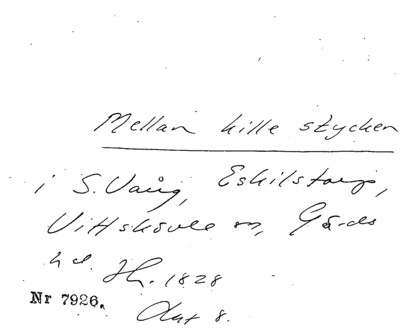 Mellan kille stycken
i S. Vång, Eskilstorp,
Vittskövle sn, Gärds
hd. Sk. 1828
Akt 8.
Nr 7926.